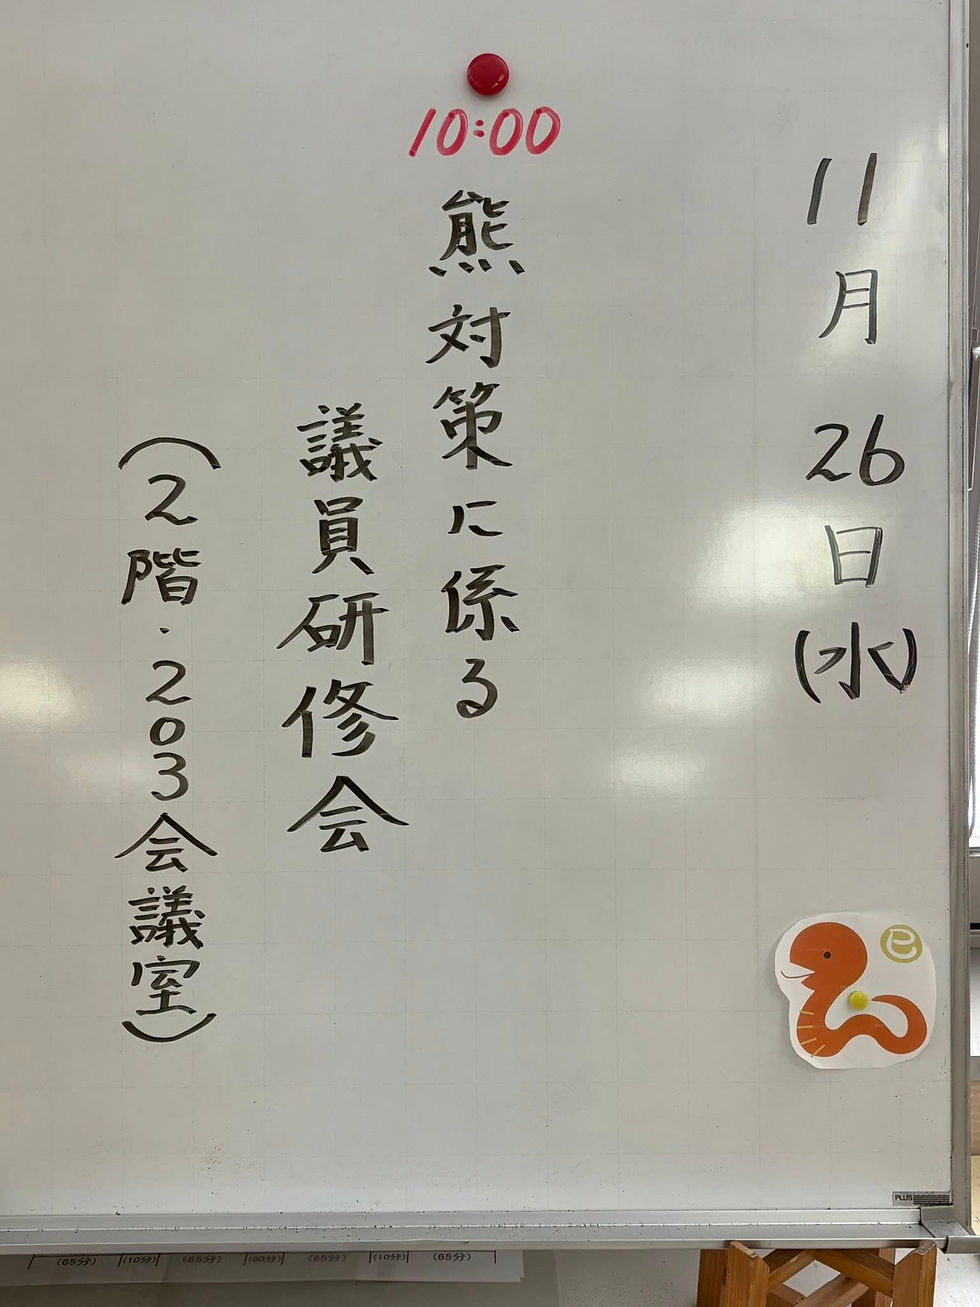 11月26日(水)
10:00
熊対策に係る
議員研修会
(2階・203会議室)
巳
PLUS
(65分)
(10分)
(65分)
(60分)
(65分)
(10分)
(65分)